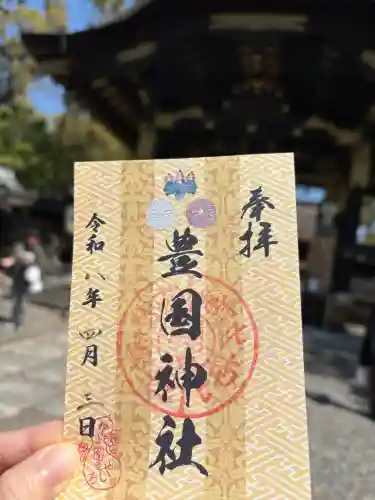 奉拝
豊国神社
令和八年四月三日